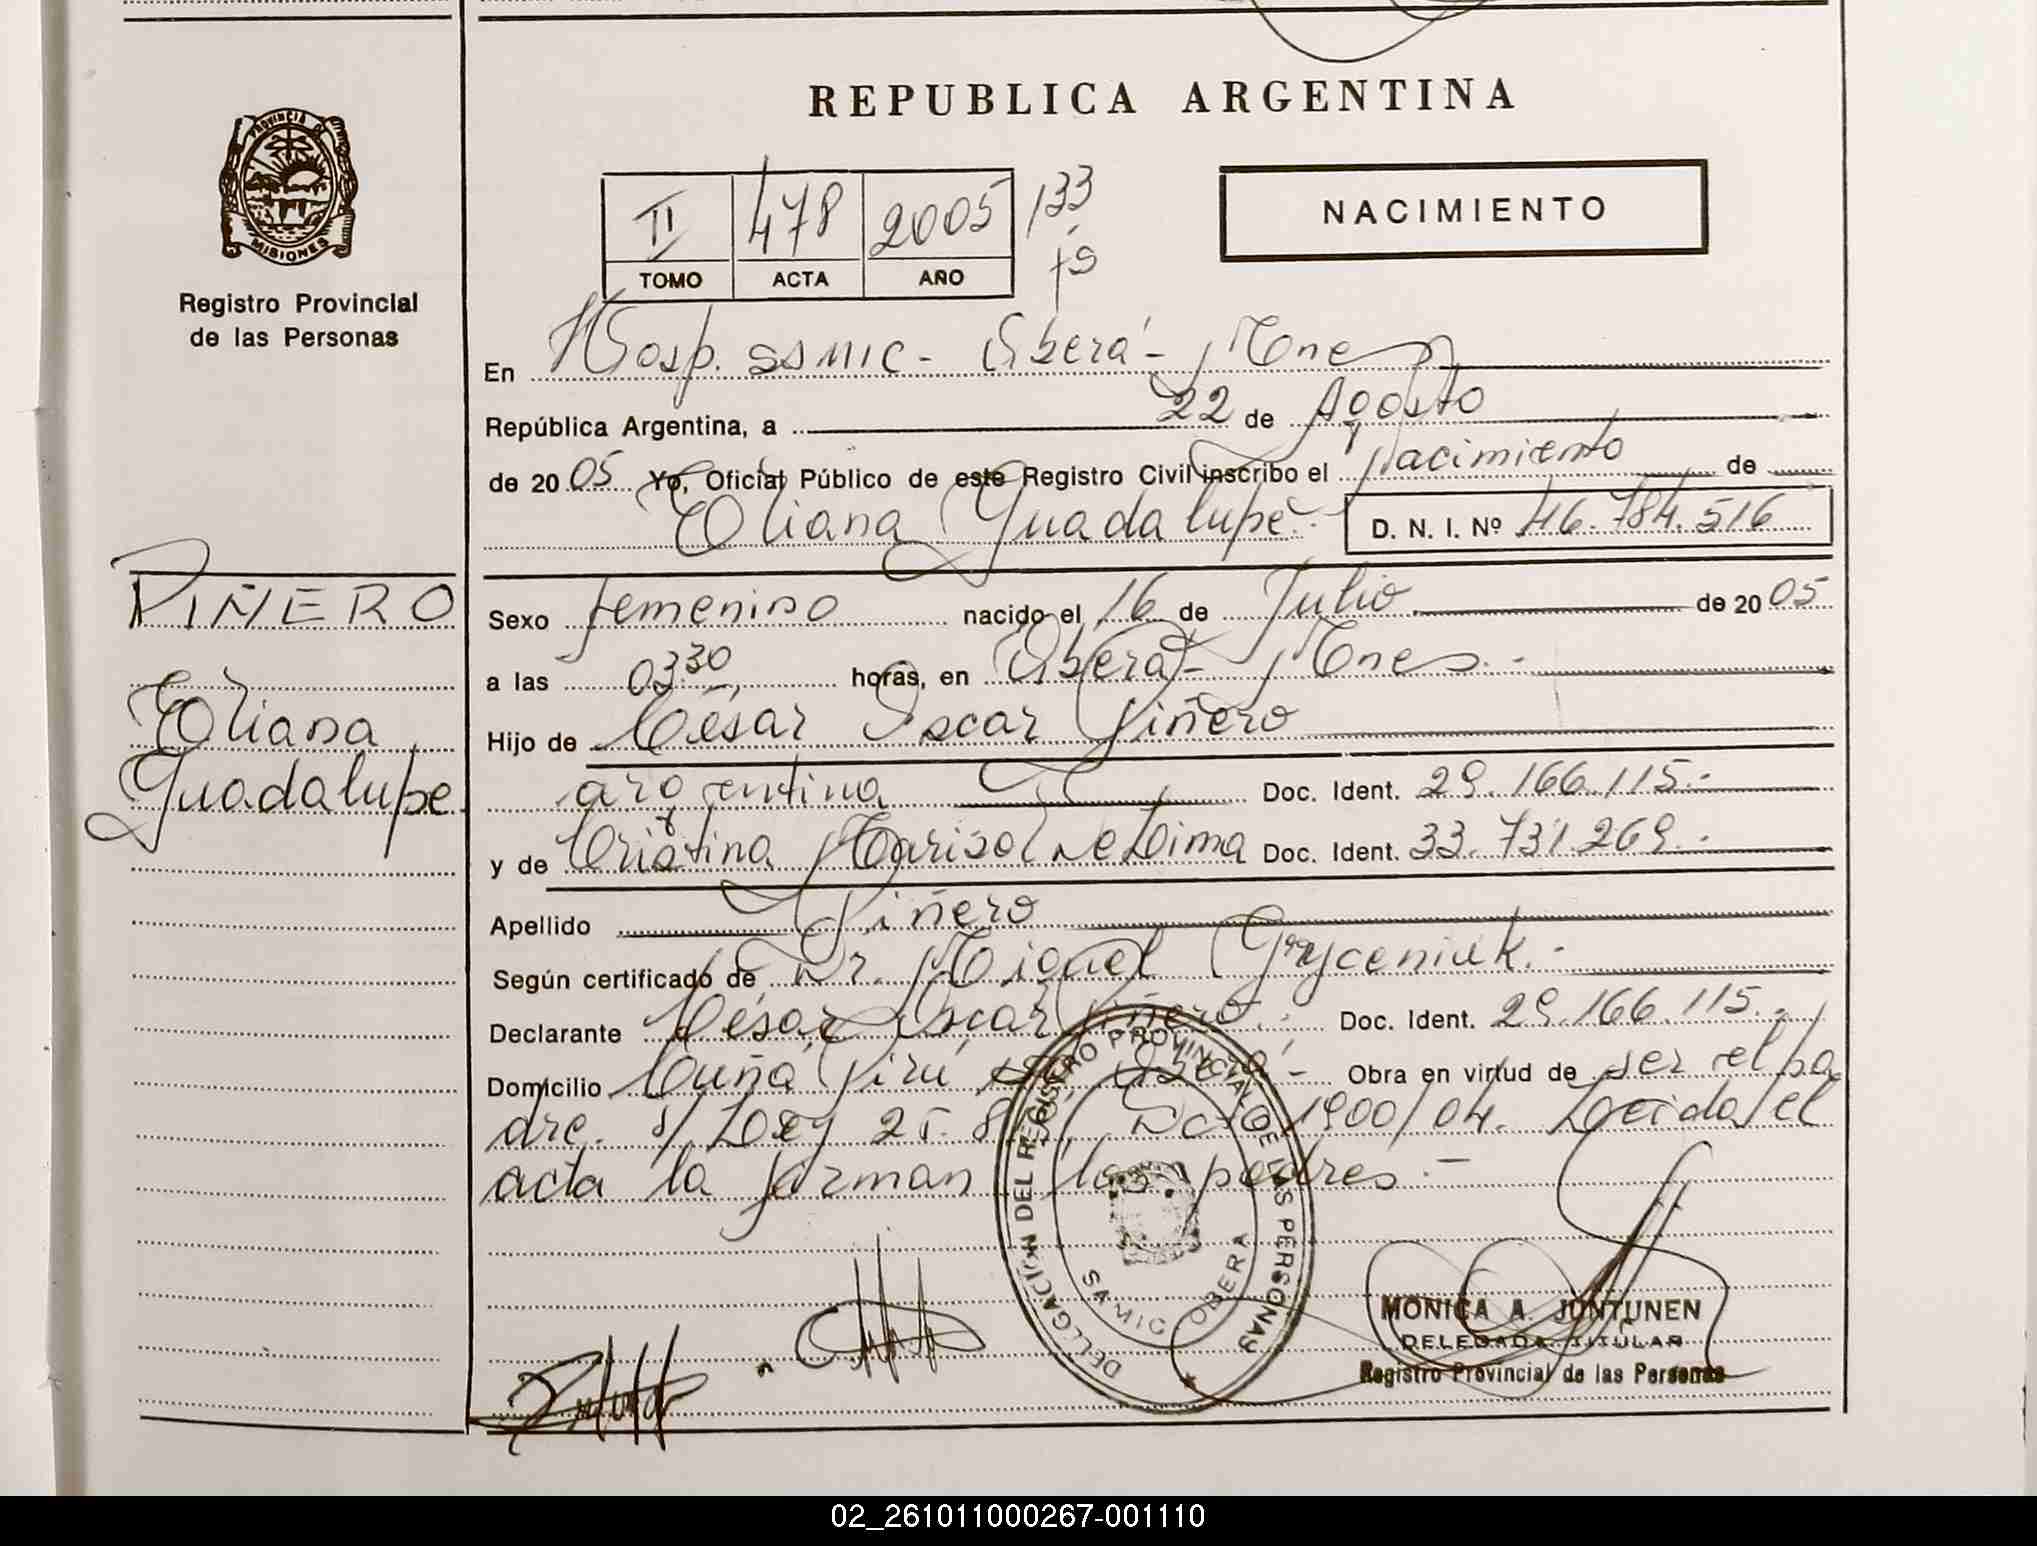 REPUBLICA ARGENTINA
PROVINCIA DE
MISIONES
Registro Provincial
de las Personas
II 478 2005 133
TOMO ACTA AÑO
NACIMIENTO
En Hosp. SAMIC - Oberá - Mnes
República Argentina, a 22 de Agosto
de 2005 Yo, Oficial Público de este Registro Civil inscribo el Nacimiento de
Eliana Guadalupe.- D. N. I. Nº 46.784.516
PIÑERO
Eliana
Guadalupe
Sexo femenino nacido el 16 de Julio de 2005
a las 03.30 horas, en Oberá - Mnes.-
Hijo de César Oscar Piñero
argentina Doc. Ident. 29.166.115.-
y de Cristina Marisol De Lima Doc. Ident. 33.731.269.-
Apellido Piñero
Según certificado de Dr. Miguel Gryceniuk.-
Declarante César Oscar Piñero.- Doc. Ident. 29.166.115.-
Domicilio Cuñá Pirú Oberá - Obra en virtud de ser el pa
dre. s/ Ley Dcto 1900/04. Leida el
acta la firman los padres.-
DELEGACION DEL REGISTRO PROVINCIAL DE LAS PERSONAS
SAMIC OBERA
MONICA A. JUNTUNEN
DELEGADA TITULAR
Registro Provincial de las Personas
02_261011000267-001110